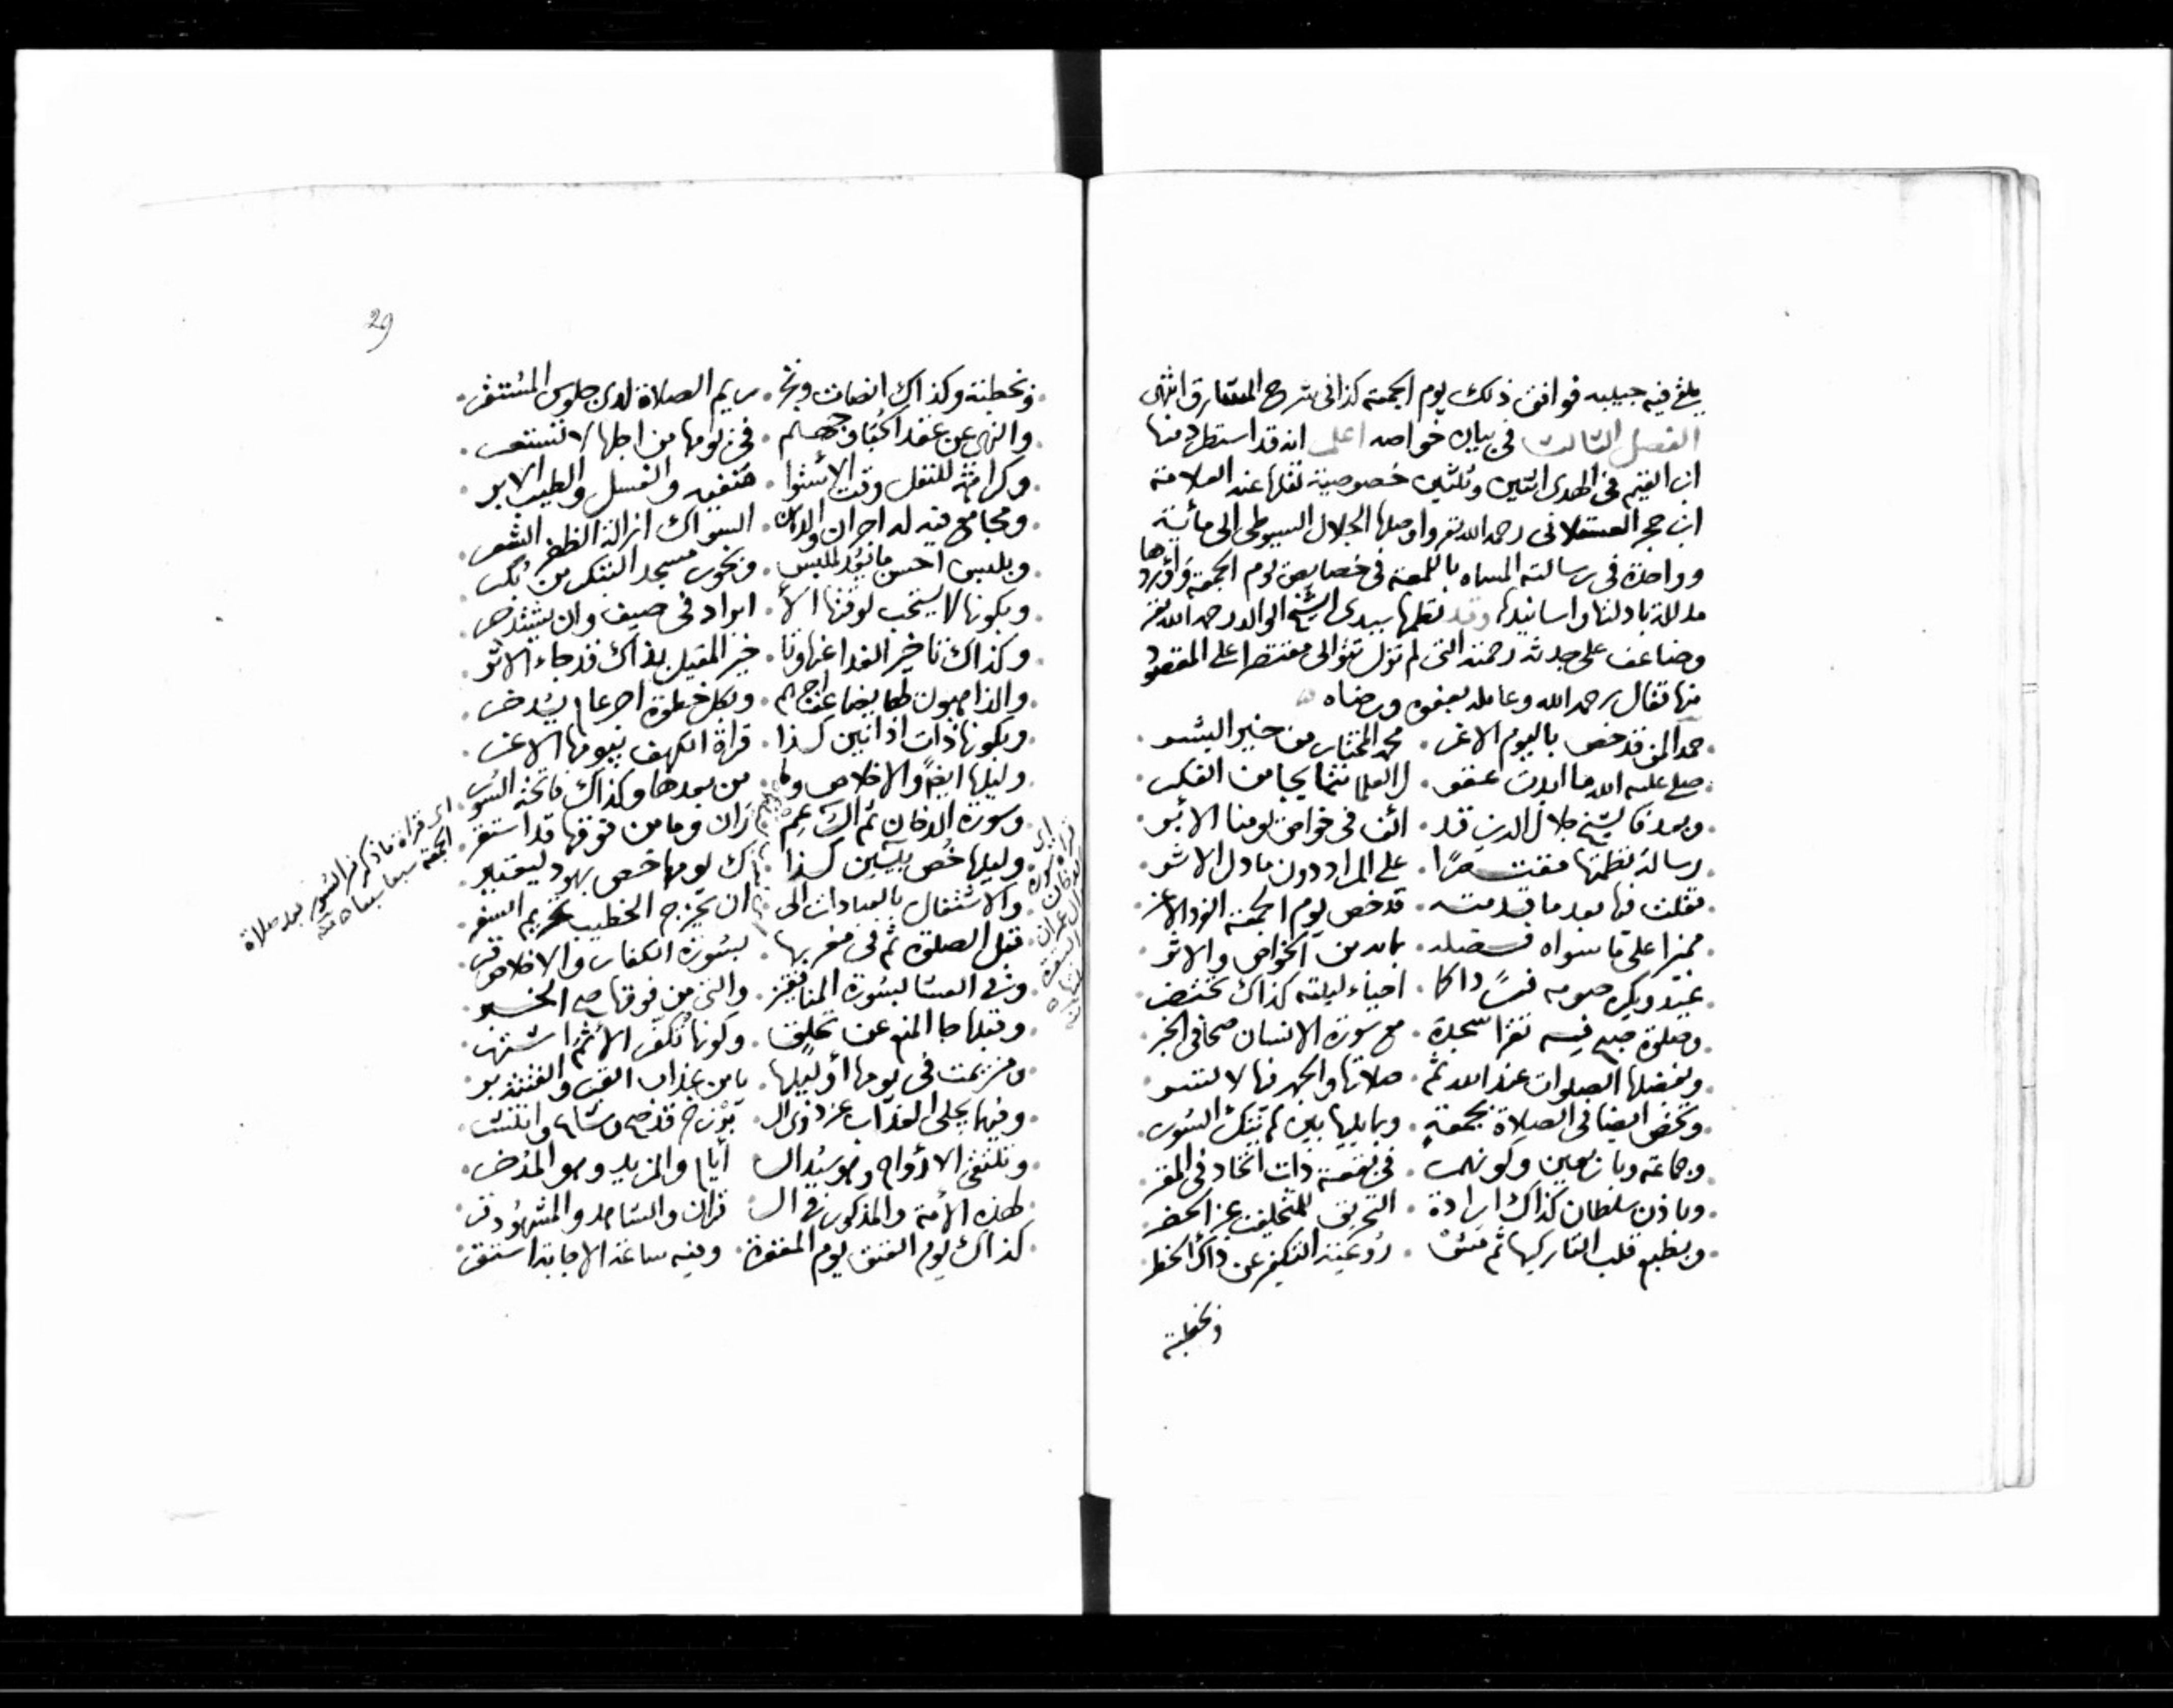 يلغ فيه حبيبه فوافق ذلك يوم الجمعة كذا فى شرح المشارق انتهى
الفصل الثالث فى بيان خواصه اعلم انه قد استطرد منها
ابن القيم فى الهدى اثنين وثلثين خصوصية نقلها عنه العلامة
ابن حجر العسقلانى رحمه الله تعر واوصلها الجلال السيوطى الى مائة
وواحدة فى رسالته المسماه باللمعة فى خصايص يوم الجمعة واوردها
مدللة بادلتها واسانيدها وقد نظمها سيدى الشيخ الوالد رحمه الله تعر
وضاعف على جدثه رحمته التى لم تزل تتوالى مقتصرا على المقصود
منها فقال رحمه الله وعامله بعفوه ورضاه
حمد المن قد خص باليوم الاغر . محمد المختار من خير البشر
صلى عليه الله ما ابدت عقو . ل العلما نتمايجا من الفكر
وبعد فالشيخ جلال الدين قد . الف فى خواص يومنا الأبر
رسالة نظمتها مقتصرًا . على المراد دون ما دل الاثر
فقلت فيها بعد ما قدمته . قد خص يوم الجمعة الفرد الاغر
مميزا على ما سواه فضله . بماله من الخواص والاثر
عيد ويكره صومه فردًا كما . احياء ليلته كذاك تختضر
وصلوة صبح فيه تقرا سجدة . مع سورة الانسان صحا فى الخبر
وبفضلها الصلوات عند الله ثم . صلاتها والجهر فيها لا تسر
وتخص ايضا فى الصلاة بجمعة . وبما يليها بين تينك السور
وجماعة وباربعين وكونها . فى بقعة ذات اتحاد فى المقر
وباذن سلطان كذاك ارادة . التحريق للمتخلفين عن الحضر
وبطبع قلب التاركيها ثم مشـ . روعية التكفير عن ذاك الخطر
وبخطبة
29
وبخطبة وكذاك انصات وتحـ . ريم الصلاة لدى جلوس المستقر
والنهى عن عقد احتباء وجهنم . فى يومها من اجلها لا تستعر
وكراهة للنفل وقت الاستوا . منفية والغسل والطيب الابر
ومجامع فيه له اجران والدن . السواك ازالة الظفر الشعر
وبلبس احسن ما يُؤد للبس . وبخور مسجد التبكر من بكر
وبكونها لا يستحب لوقتها الأ . ابراد فى صيف وان يشتد حر
وكذاك تاخير الغدا عنها وتا . خير المقيل بذاك قد جاء الاثر
والذاهبون لها يضاعف اجرهم . وبكل خطوة اجر عام يدخر
وبكونها ذات اذانين كذا . قراة الكهف بيومها الاغر
وليلها ايضًا والاخلاص وما . من بعدها وكذاك فاتحة السور
وسورة الدخان ثم آل عمـ . ران وما من فوقها قد استقر
وليلها خُص بيٰسين كذا . ك يومها خص بهود ليعتبر
والاشتغال بالعبادات الى . ان يخرج الخطيب تحريم السفر
قبل الصلوة ثم فى مغربها . بسورة الكفار والاخلاص قر
وفى العشا بسورة المنافقين . والتى من فوقها صح الخبر
وقبلها جا المنع عن تحلق . وكونها تُكفّر الأثم اشتهر
من يمت فى يومها او ليلها . يامن عذاب القبر والفتن ذر
وفيها يجلى العذاب عن ذوى الـ . برزخ قد صح وشاع وانتشر
وتلتقى الارواح وهو سيد الـ . أيام والمزيد وهو المدخر
لهذه الأمة والمذكور فى الـ . قران والشاهد والمشهود قر
كذاك يوم العتق يوم المغفرة . وفيه ساعة الاجابة استقر
اى قراة ما ذكر من السور بعد صلاة
الجمعة سبعا سبعا منه